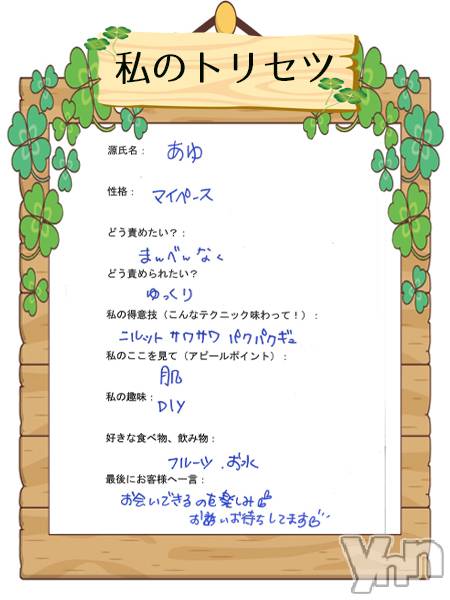 私のトリセツ
源氏名： あゆ
性格： マイペース
どう責めたい？：
まんべんなく
どう責められたい？
ゆっくり
私の得意技（こんなテクニック味わって！）：
ニルット サワサワ パクパクギュ
私のここを見て（アピールポイント）：
肌
私の趣味：
DIY
好きな食べ物、飲み物：
フルーツ．お水
最後にお客様へ一言：
お会いできるのを楽しみに
お誘いお待ちしてます
ynn